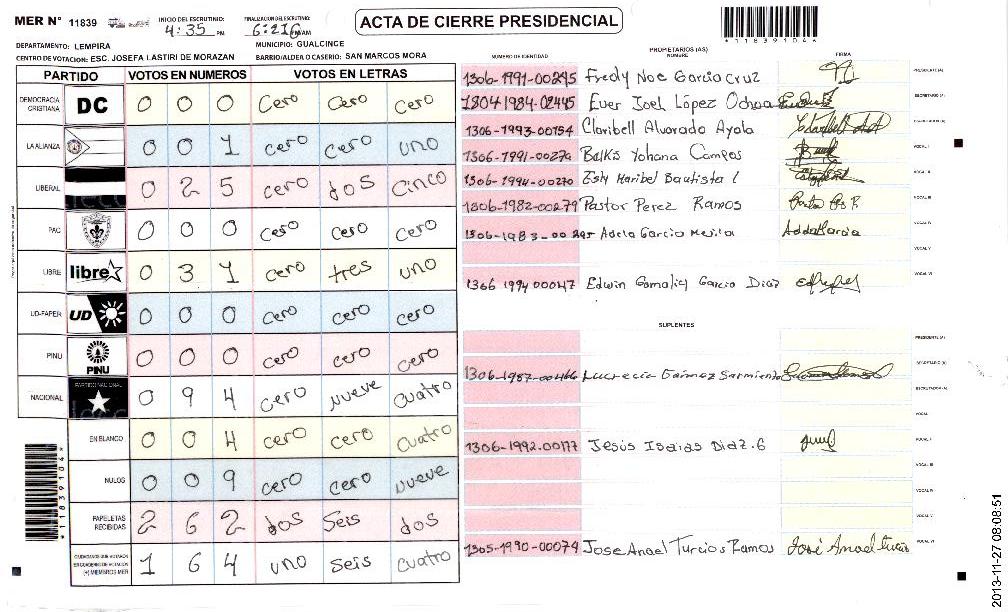 MER N° 11839
INICIO DEL ESCRUTINIO:
4:35 PM
FINALIZACION DEL ESCRUTINIO:
ACTA DE CIERRE PRESIDENCIAL
*11839104*
DEPARTAMENTO: LEMPIRA
MUNICIPIO: GUALCINCE
CENTRO DE VOTACION: ESC. JOSEFA LASTIRI DE MORAZAN
BARRIO/ALDEA O CASERIO: SAN MARCOS MORA
PARTIDO VOTOS EN NUMEROS VOTOS EN LETRAS
DEMOCRACIA CRISTIANA DC 0 0 0 cero cero cero
LA ALIANZA 0 0 1 cero cero uno
LIBERAL 0 2 5 cero dos cinco
PAC 0 0 0 cero cero cero
LIBRE libre 0 3 1 cero tres uno
UD-FAPER UD 0 0 0 cero cero cero
PINU PINU 0 0 0 cero cero cero
NACIONAL PARTIDO NACIONAL 0 9 4 cero nueve cuatro
EN BLANCO 0 0 4 cero cero cuatro
NULOS 0 0 9 cero cero nueve
PAPELETAS RECIBIDAS 2 6 2 dos seis dos
CIUDADANOS QUE VOTARON EN CUADERNO DE VOTACION (+) MIEMBROS MER 1 6 4 uno seis cuatro
*11839104*
PROPIETARIOS (AS)
NUMERO DE IDENTIDAD NOMBRE FIRMA
1306-1991-00295 Fredy Noe Garcia Cruz PRESIDENTE (A)
1804 1984-02445 Ever Joel López Ochoa SECRETARIO (A)
1306-1993-00154 Claribell Alvarado Ayala ESCRUTADOR (A)
1306-1991-00279 Yohana Campos VOCAL I
1306-1994-00270 Esly Maribel Bautista L VOCAL II
1306-1982-00279 Pastor Perez Ramos VOCAL III
1306-1983-00295 Adela Garcia Mejia Adela Garcia VOCAL IV
VOCAL V
1994 00047 Edwin Gamaliel Garcia Diaz VOCAL VI
SUPLENTES
PRESIDENTE (A)
1306-1987-00466 Lucrecia Gámez Sarmiento SECRETARIO (A)
ESCRUTADOR (A)
VOCAL
1306-1992-00177 Jesús Isaias Diaz. G VOCAL II
VOCAL III
VOCAL IV
VOCAL V
1305-1990-00074 Jose Anael Turcios Ramos José Anael Turcios VOCAL VI
2013-11-27 08:08:51